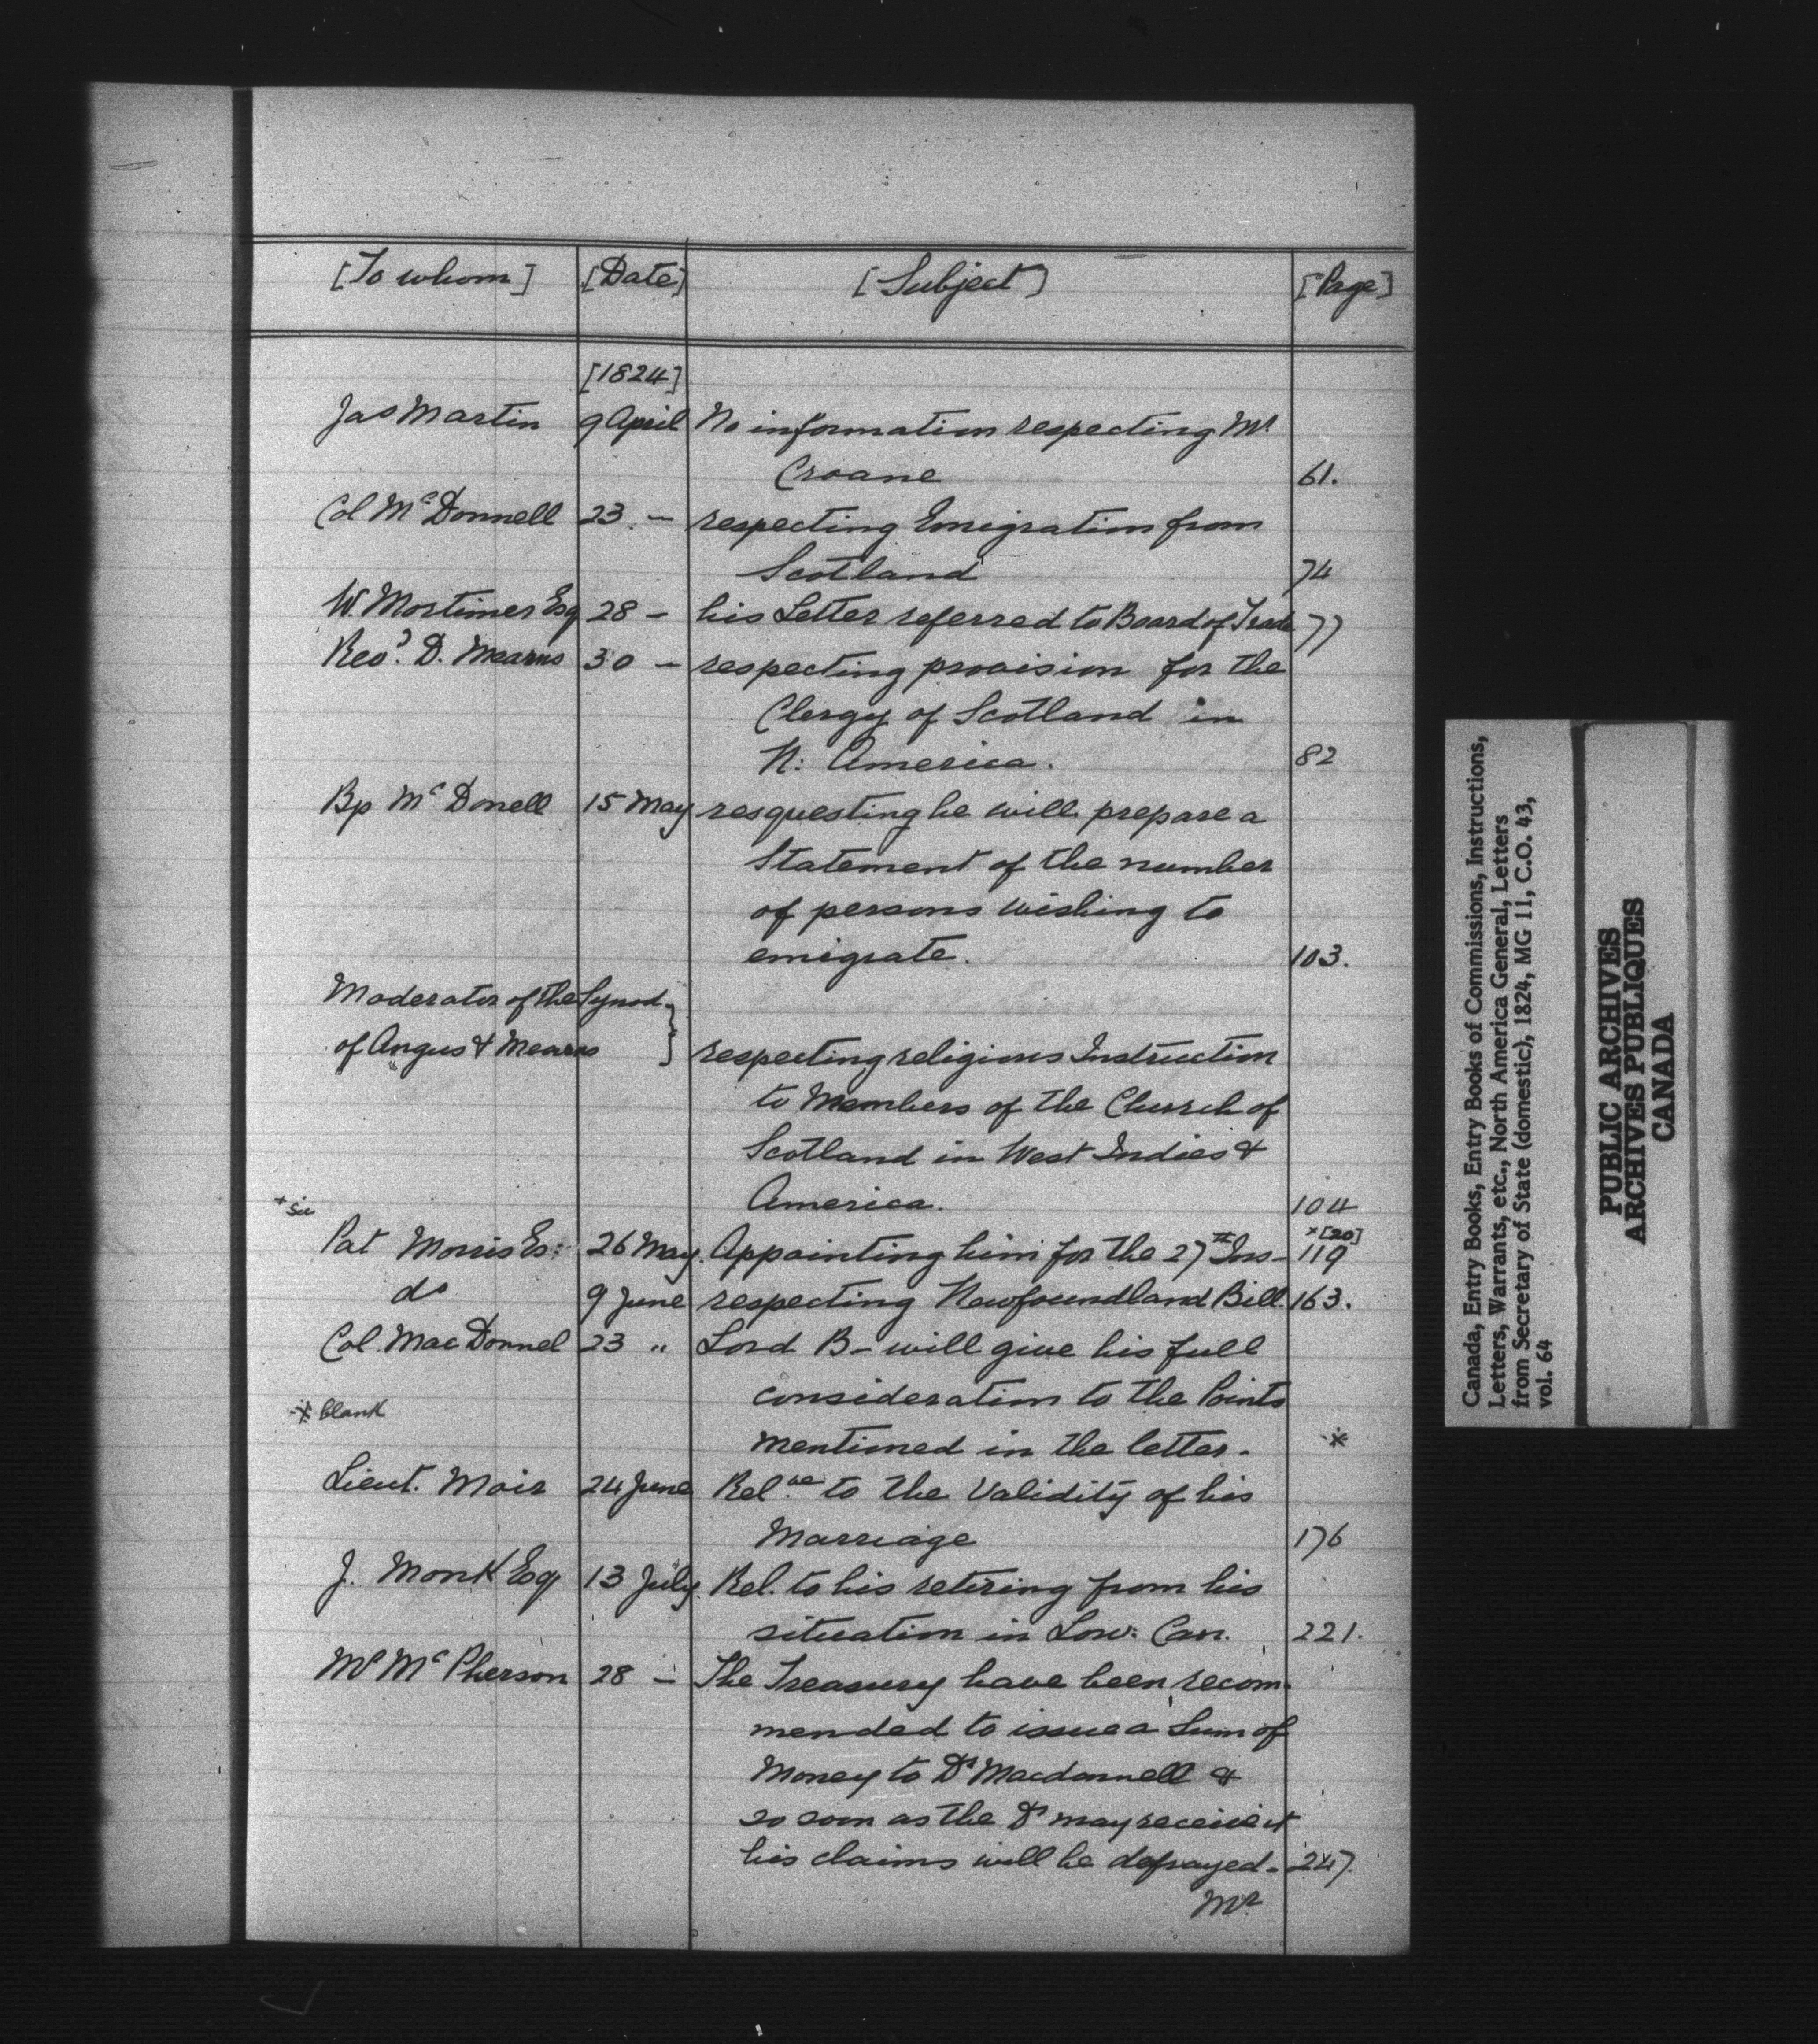 [To whom] [Date] [Subject] [Page]
[1824]
Jas Martin 9 April No information respecting Mr
Croane 61.
Col McDonnell 23. — respecting Emigration from
Scotland 74
W. Mortimer Esq 28 — his Letter referred to Board of Trade 77
Revd. D. Mearns 30 — respecting provision for the
Clergy of Scotland in
N: America. 82
Bp McDonell 15 May resquesting he will prepare a
Statement of the number
of persons wishing to
emigrate. 103.
Moderator of the Synod }
of Angus & Mearns } respecting religious Instruction
to Members of the Church of
Scotland in West Indies &
America. 104
+ sic x [20]
Pat Morris Es: 26 May. Appointing him for the 27th Ins— 119
do 9 June respecting Newfoundland Bill. 163.
Col. MacDonnel 23 " Lord B— will give his full
consideration to the Points
* blank
mentioned in the letter. *
Lieut. Moir 24 June Relve to the Validity of his
Marriage 176
J. Monk Esq 13 July. Rel. to his retiring from his
situation in Low: Can. 221.
Mr McPherson 28 — The Treasury have been recom-
mended to issue a Sum of
Money to Dr Macdonnell &
so soon as the Dr may receive it
his claims will be defrayed. 247.
Mr.
Canada, Entry Books, Entry Books of Commissions, Instructions,
Letters, Warrants, etc., North America General, Letters
from Secretary of State (domestic), 1824, MG 11, C.O. 43,
vol. 64
PUBLIC ARCHIVES
ARCHIVES PUBLIQUES
CANADA